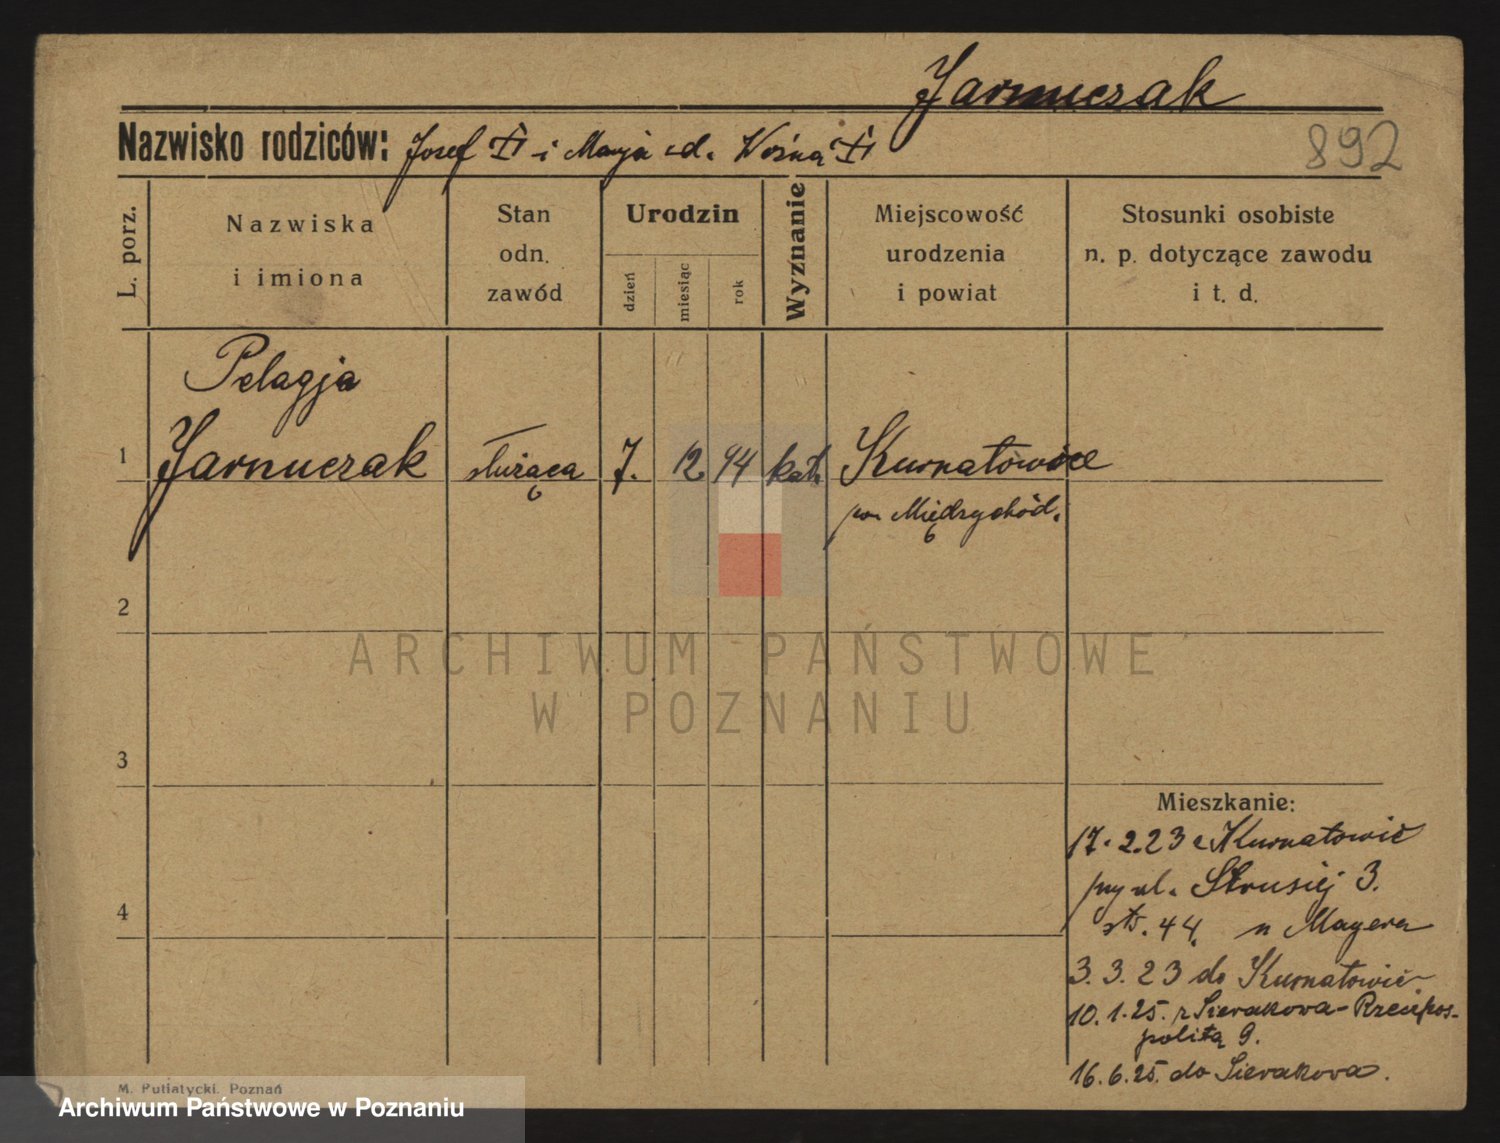 Jarnuczak
Nazwisko rodziców: Josef i Marja d. Woźna
892
L. porz.
Nazwiska
i imiona
Stan
odn.
zawód
Urodzin
dzień
miesiąc
rok
Wyznanie
Miejscowość
urodzenia
i powiat
Stosunki osobiste
n. p. dotyczące zawodu
i t. d.
Pelagja
1 Jarnuczak służąca 7. 12 94 kat. Kurnatowice
pow Międzychód.
2
ARCHIWUM PAŃSTWOWE
W POZNANIU
3
Mieszkanie:
17. 2.23 z Kurnatowic
przy ul. Strusiej 3.
4
str. 44. u Mayera
3. 3. 23 do Kurnatowic
10. 1.25. z Sierakowa - Rzeczpos-
politą 9.
16. 6. 25. do Sierakowa.
M. Putiatycki, Poznań
Archiwum Państwowe w Poznaniu